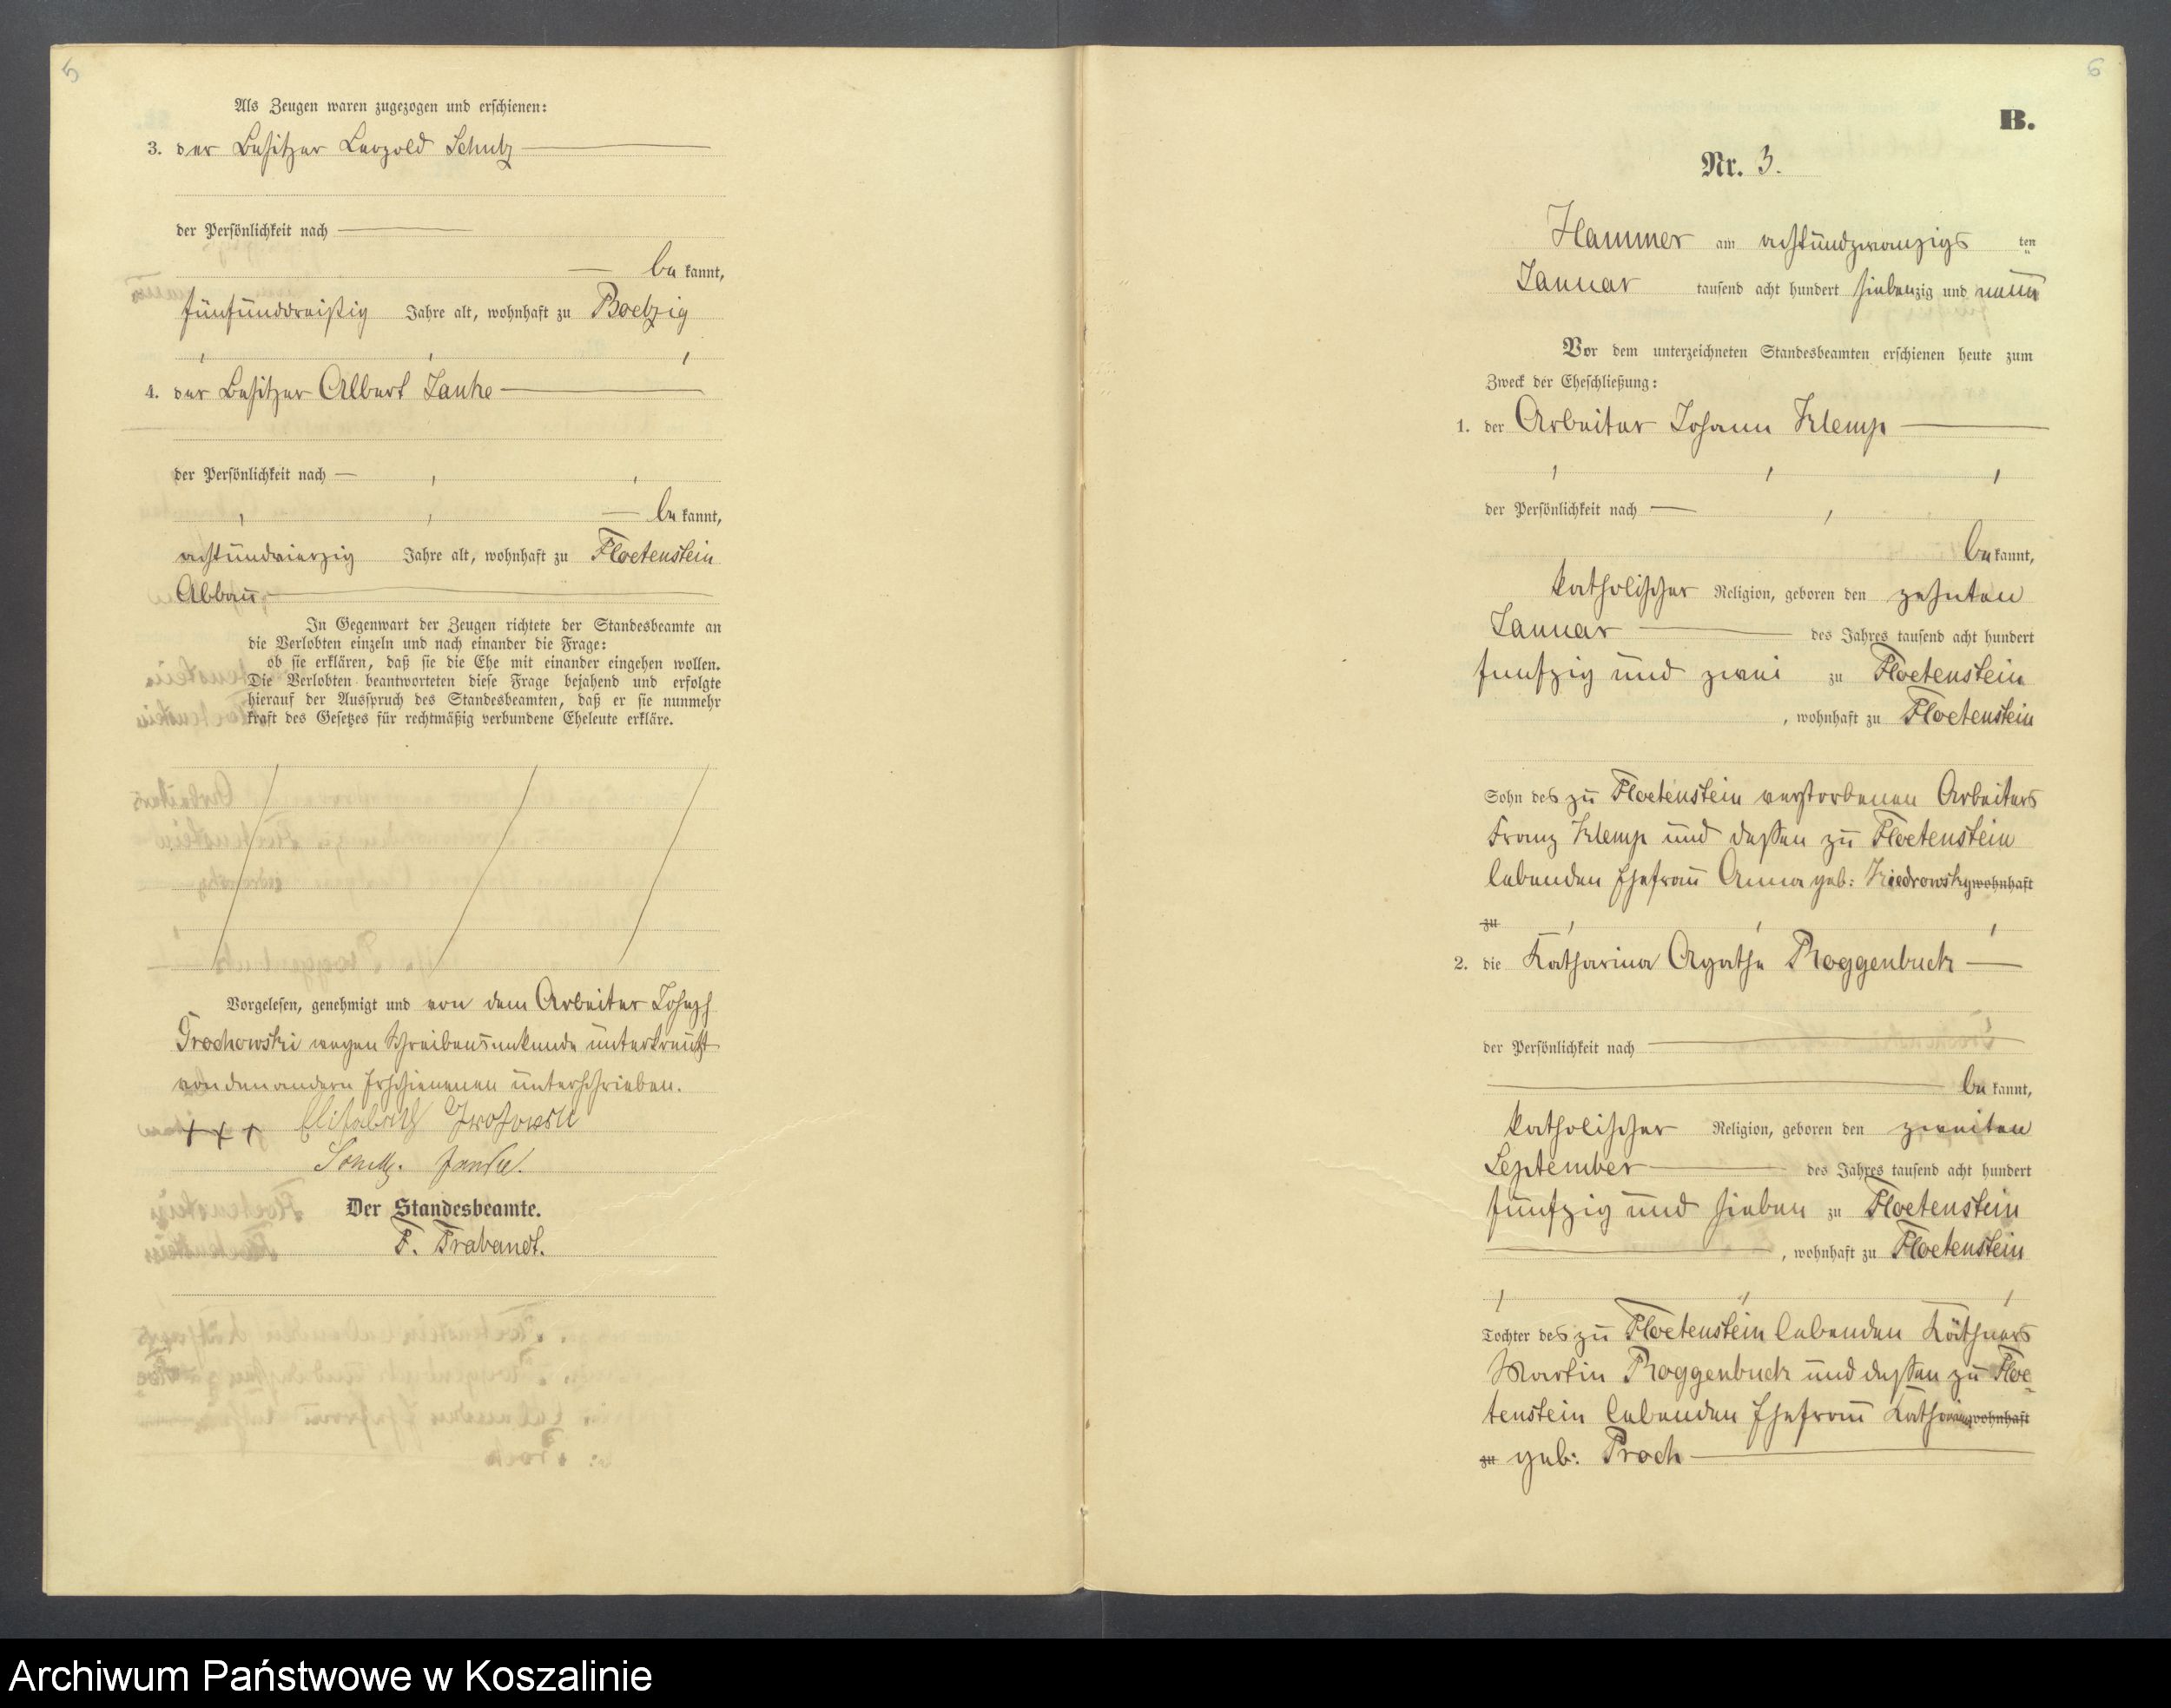 5
Als Zeugen waren zugezogen und erschienen:
3. der Besitzer Leopold Schulz
der Persönlichkeit nach
be kannt,
fünfunddreißig Jahre alt, wohnhaft zu Boelzig
4. der Besitzer Albert Janke
der Persönlichkeit nach
be kannt,
achtundvierzig Jahre alt, wohnhaft zu Floetenstein
Abbau
In Gegenwart der Zeugen richtete der Standesbeamte an
die Verlobten einzeln und nach einander die Frage:
ob sie erklären, daß sie die Ehe mit einander eingehen wollen.
Die Verlobten beantworteten diese Frage bejahend und erfolgte
hierauf der Ausspruch des Standesbeamten, daß er sie nunmehr
kraft des Gesetzes für rechtmäßig verbundene Eheleute erkläre.
Vorgelesen, genehmigt und von dem Arbeiter Joseph
Grochowski wegen Schreibensunkunde unterkreuzt
von den andern Erschienenen unterschrieben.
+ + + Elisabeth
Schulz. Janke.
Der Standesbeamte.
F. Trabandt.
6
B.
Nr. 3.
Hammer am achtundzwanzigs ten
Januar tausend acht hundert siebenzig und neun
Vor dem unterzeichneten Standesbeamten erschienen heute zum
Zweck der Eheschließung:
1. der Arbeiter Johann Klemp
der Persönlichkeit nach
be kannt,
katholischer Religion, geboren den zehnten
Januar des Jahres tausend acht hundert
funfzig und zwei zu Floetenstein
, wohnhaft zu Floetenstein
Sohn des zu Floetenstein verstorbenen Arbeiters
Franz Klemp und dessen zu Floetenstein
lebenden Ehefrau Anna geb: Kiedrowsky wohnhaft
zu
2. die Katharina Agathe Roggenbuck
der Persönlichkeit nach
be kannt,
katholischer Religion, geboren den zweiten
September des Jahres tausend acht hundert
funfzig und sieben zu Floetenstein
, wohnhaft zu Floetenstein
Tochter des zu Floetenstein lebenden Käthners
Martin Roggenbuck und dessen zu Floe-
tenstein lebenden Ehefrau Katharina wohnhaft
zu geb: Proch
Archiwum Państwowe w Koszalinie